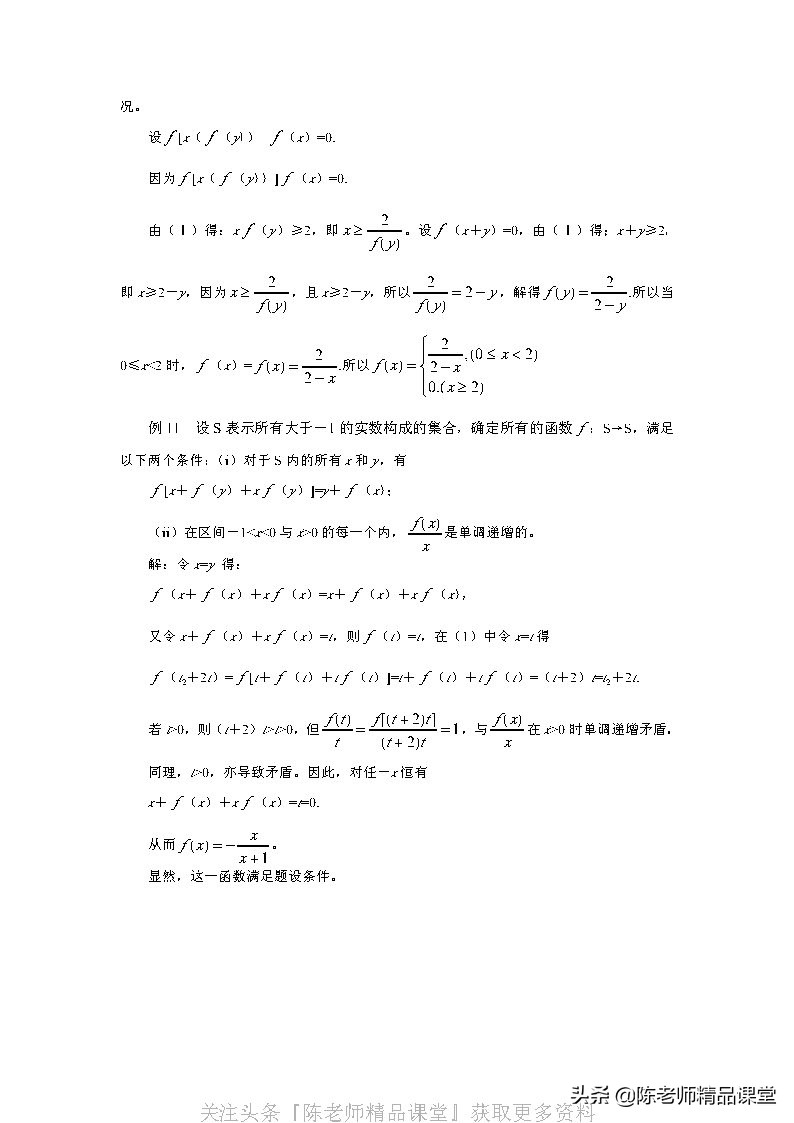 况。
设 f [x（f（y））f（x）=0.
因为 f [x（f（y））] f（x）=0.
由（Ⅰ）得：x f（y）≥2，即 x ≥ 2/f(y)。设 f（x+y）=0，由（Ⅰ）得：x+y≥2,
即 x≥2－y，因为 x ≥ 2/f(y)，且 x≥2－y，所以 2/f(y) = 2－y，解得 f(y) = 2/(2－y).所以当
0≤x<2 时，f（x）= f(x) = 2/(2－x).所以 f(x) = { 2/(2－x), (0 ≤ x < 2)
0.(x ≥ 2)
例 11 设 S 表示所有大于－1 的实数构成的集合，确定所有的函数 f：S→S，满足
以下两个条件：(ⅰ）对于 S 内的所有 x 和 y，有
f [x＋f（y）＋x f（y）]=y＋f（x）；
（ⅱ）在区间－1<x<0 与 x>0 的每一个内，f(x)/x 是单调递增的。
解：令 x=y 得：
f（x＋f（x）＋x f（x）=x＋f（x）＋x f（x），
又令 x＋f（x）＋x f（x）=t，则 f（t）=t，在（1）中令 x=t 得
f（t₂＋2t）= f [t＋f（t）＋t f（t）]=t＋f（t）＋t f（t）=（t＋2）t=t₂＋2t.
若 t>0，则（t＋2）t>t>0，但 f(t)/t = f[(t＋2)t]/(t＋2)t = 1，与 f(x)/x 在 x>0 时单调递增矛盾，
同理，t>0，亦导致矛盾。因此，对任一 x 恒有
x＋f（x）＋x f（x）=t=0.
从而 f(x) = － x/(x＋1)。
显然，这一函数满足题设条件。
关注头条『陈老师精品课堂』获取更多资料
头条 @陈老师精品课堂